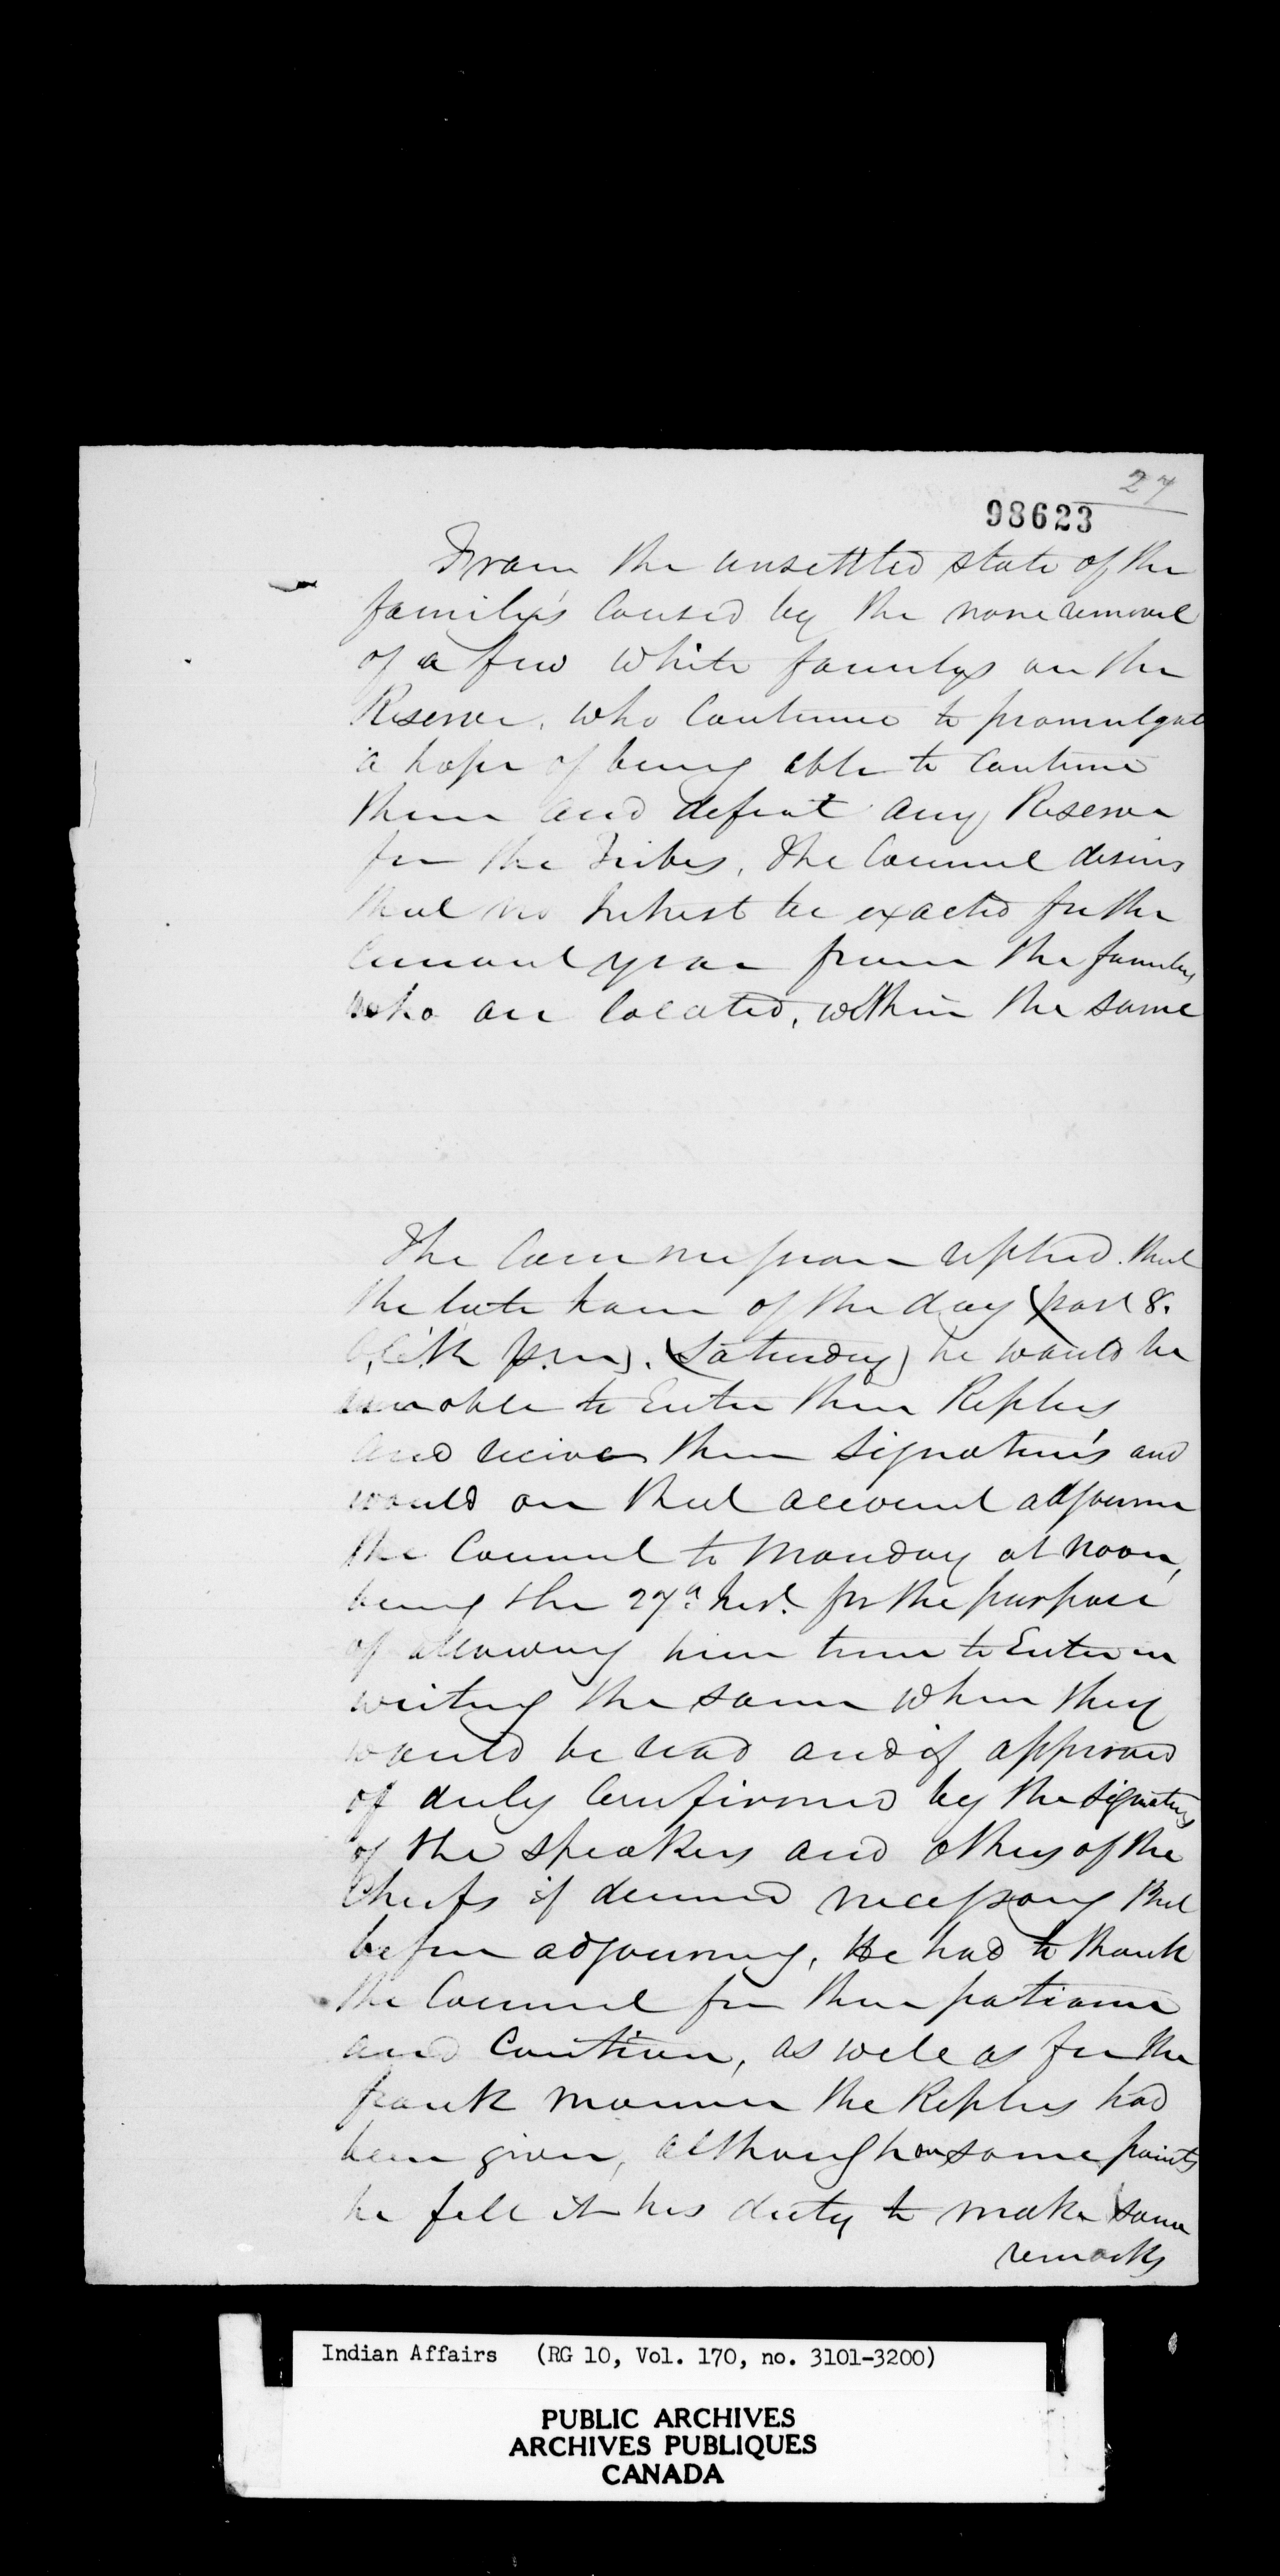 27
98623
From the unsettled state of the
family's caused by the none removal
of a few white familys on the
Reserve, who continue to promulgate
a hope of being able to continue
there and defeat any Reserve
for the Tribes, The Council desires
that no Interest be exacted for the
current year from the familys
who are located, within the same
The Commissioner replied that
the late hour of the day (past 8.
O,Clk P.m). (Saturday) he would be
unable to Enter their Replies
and receive their Signature's and
would on that account adjourn
the Council to Monday at Noon,
being the 27th Inst. for the purpose
of allowing him time to Enter in
writing the same when they
would be read and if approved
of duly Confirmed by the Signatures
of the Speakers and others of the
Chiefs if deemed necessary that
before adjourning, He had to thank
the Council for their patience
and Caution, as well as for the
frank manner the Replies had
been given, although on some points
he felt it his duty to make some
remarks
Indian Affairs (RG 10, Vol. 170, no. 3101-3200)
PUBLIC ARCHIVES
ARCHIVES PUBLIQUES
CANADA